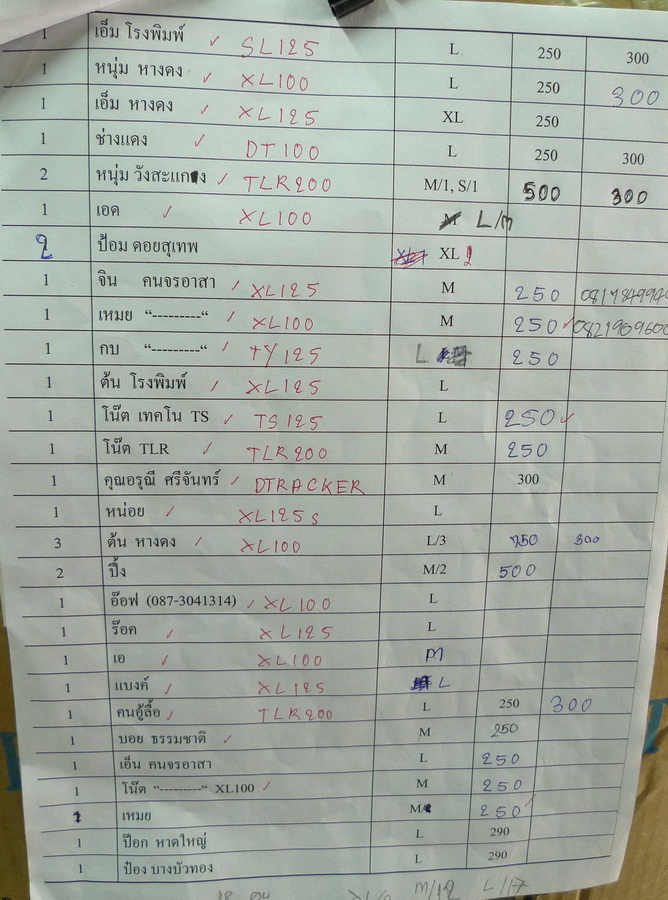 1 เอ็ม โรงพิมพ์ ✓ SL125 L 250 300
1 หนุ่ม หางดง ✓ XL100 L 250 300
1 เอ็ม หางดง ✓ XL125 XL 250
1 ช่างแดง ✓ DT100 L 250 300
2 หนุ่ม วังสะแกง ✓ TLR200 M/1, S/1 500 300
1 เอด ✓ XL100 L/M
2 ป้อม ดอยสุเทพ XL
1 จิน คนจรอาสา ✓ XL125 M 250
1 เหมย “---------“ ✓ XL100 M 250 ✓ 0821909600
1 กบ “---------“ ✓ TY125 L 250
1 ต้น โรงพิมพ์ ✓ XL125 L
1 โน๊ต เทคโน TS ✓ TS125 L 250 ✓
1 โน๊ต TLR ✓ TLR200 M 250
1 คุณอรุณี ศรีจันทร์ ✓ DTRACKER M 300
1 หน่อย ✓ XL125s L
3 ต้น หางดง ✓ XL100 L/3 750 300
2 ปิ้ง M/2 500
1 อ๊อฟ (087-3041314) ✓ XL100 L
1 ร๊อค ✓ XL125 L
1 เอ ✓ XL100 M
1 แบงค์ ✓ XL125 L
1 คนอู้ลื้อ ✓ TLR200 L 250 300
1 บอย ธรรมชาติ ✓ M 250
1 เอ็น คนจรอาสา L 250
1 โน๊ต “---------“ XL100 ✓ M 250
1 เหมย M 250
1 ป๊อก หาดใหญ่ L 290
1 ป๋อง บางบัวทอง L 290
M/12 L/17